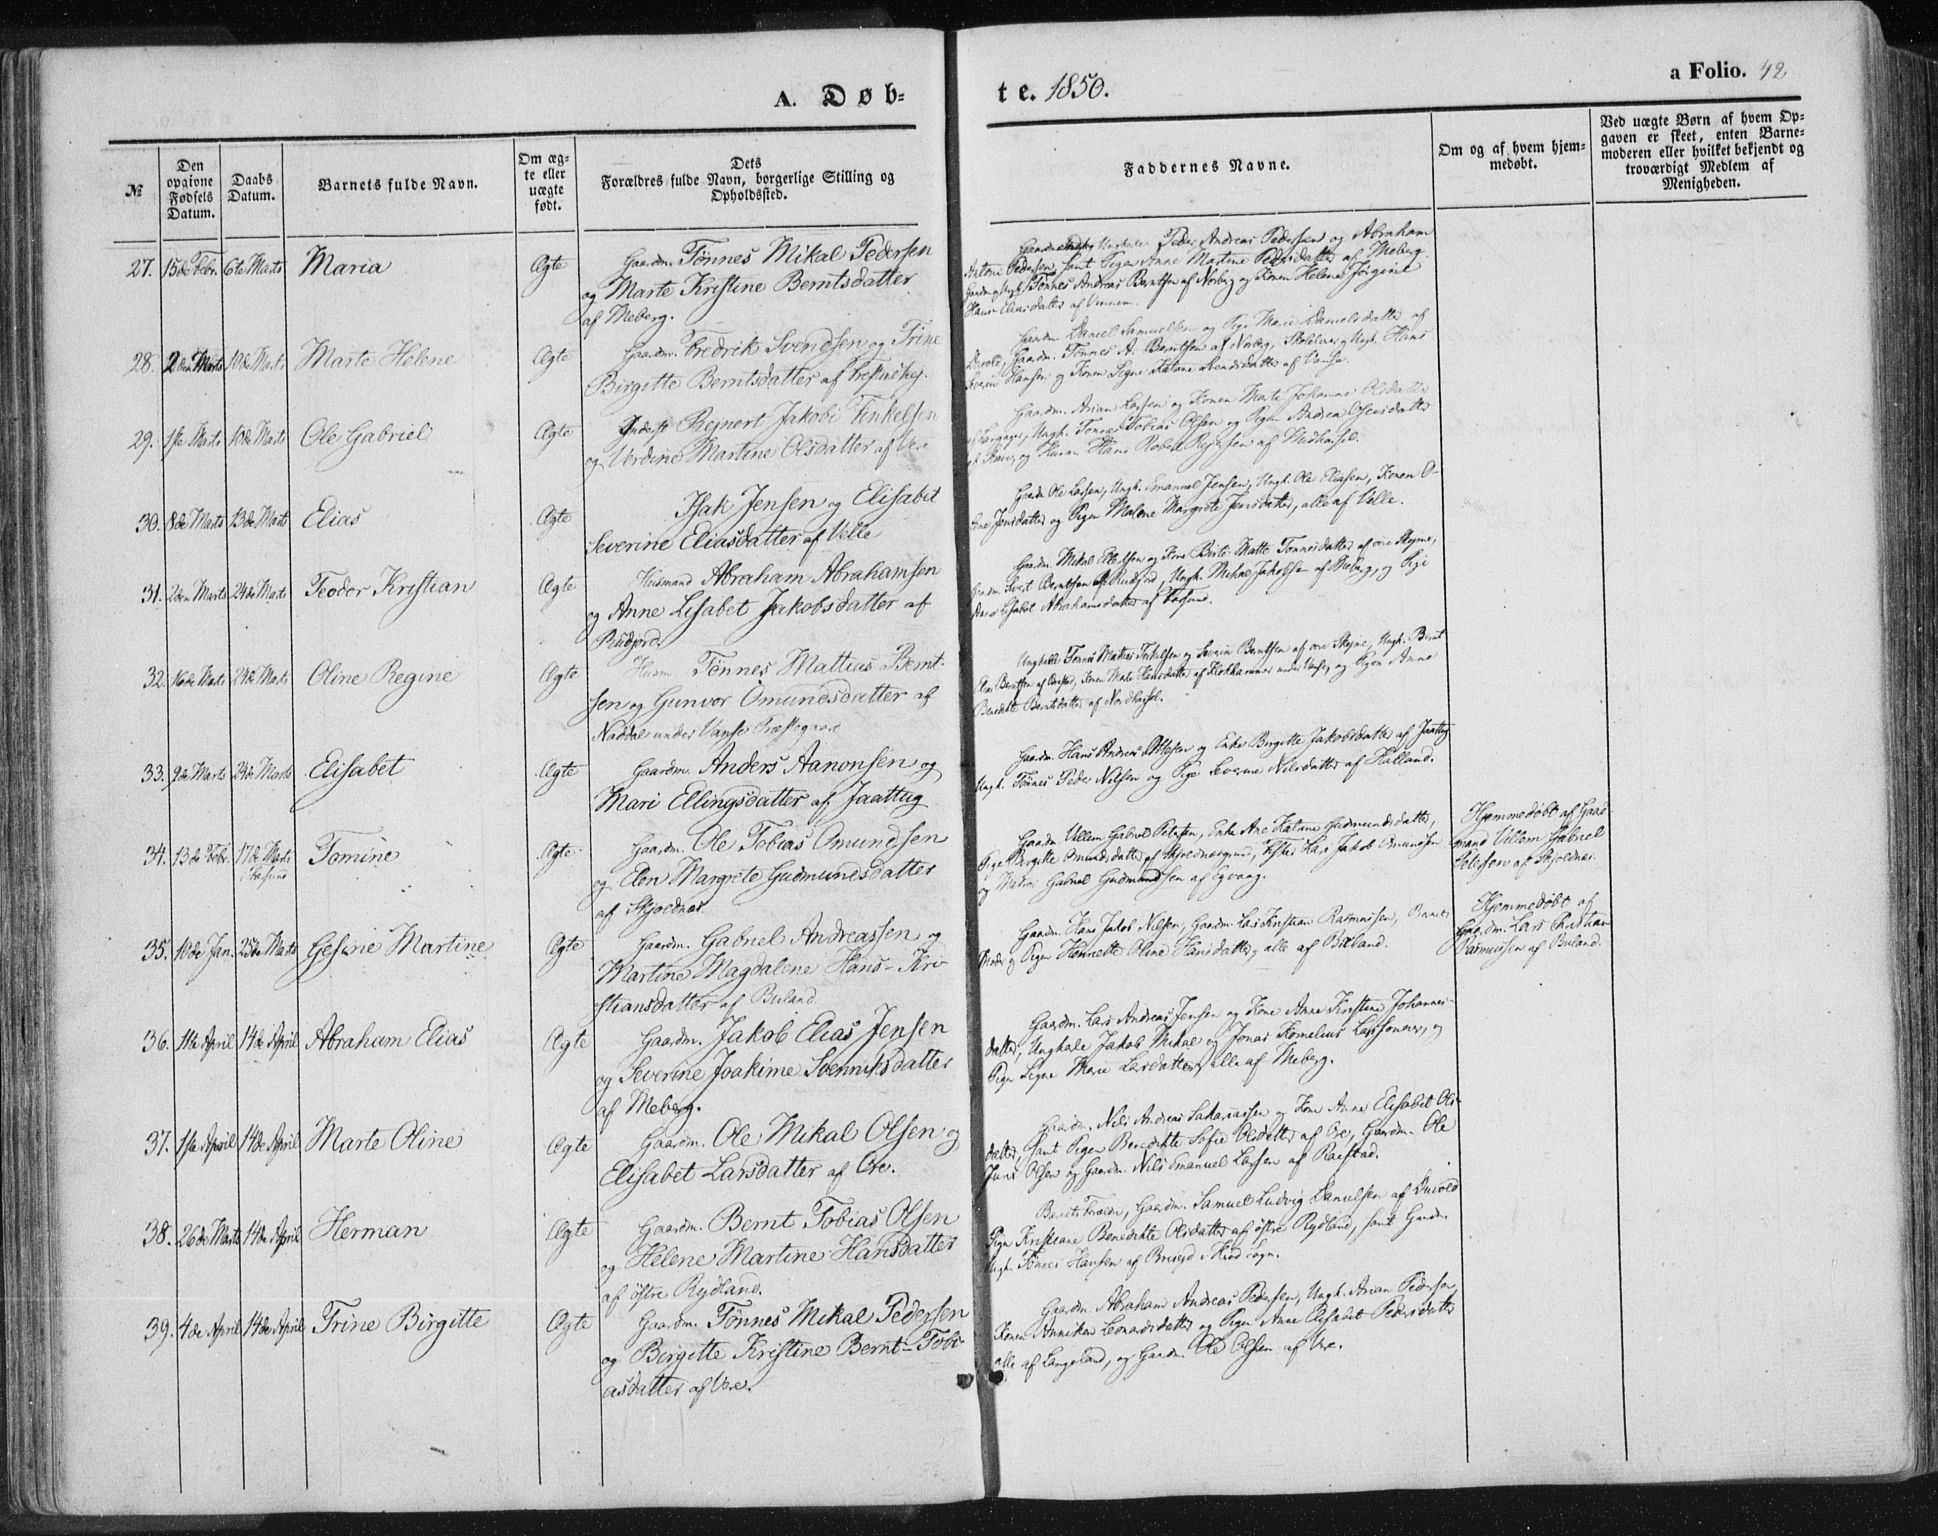 A. Døb-
te. 1850.
a Folio. 42
№
Den opgivne Fødsels Datum.
Daabs Datum.
Barnets fulde Navn.
Om ægte eller uægte født.
Dets
Forældres fulde Navn, borgerlige Stilling og
Opholdssted.
Faddernes Navne.
Om og af hvem hjem-
medøbt.
Ved uægte Børn af hvem Op-
gaven er skeet, enten Barne-
moderen eller hvilket bekjendt og
troværdigt Medlem af
Menigheden.
27. 15de Febr. 6te Marts Maria Ægte Gaardm. Tønnes Mikal Pedersen
og Marte Kristine Berntsdatter
af Meberg.
Peder Andreas Pedersen og Abraham
Antone Pedersen, samt Pigen Anne Martine Pedersdatter af Meberg.
Tønnes Andreas Berntsen af Norberg og Konen Helene Jørgine
Hans Eliasdatter af
28. 2den Marts 10de Marts Marte Helene Ægte Gaardm. Fredrik Svendsen og Trine
Birgitte Berntsdatter af
Gaardm. Daniel Samuelsen og Pige Marie Danielsdatter af
Gaardm. Tønnes A. Berntsen af Norberg, Ungk. Hans
Hansen og Konen Signe Katrine Svendsdatter af
29. 1ste Marts 10de Marts Ole Gabriel Ægte Inderst Rejnert Jakobi Tinkelsen
og Verdine Martine Olsdatter af Ore
Gaardm. Arian Larsen og Konen Marte Johanne Olsdatter
Ungk. Tønnes Tobias Olsen og Pigen Andrea
og Husm. Hans Robert Regersen af Midhassel.
30. 8de Marts 13de Marts Elias Ægte Isak Jensen og Elisabet
Severine Eliasdatter af Velle
Gaardm. Ole Larsen, Ungk. Emanuel Jensen, Ungk. Ole Eliasen, Konen O-
line Jensdatter og Pigen Malene Margrete Jensdatter, alle af Velle.
31. 2den Marts 24de Marts Teodor Kristian Ægte Husmand Abraham Abrahamsen
og Anne Lisabet Jakobsdatter af
Rudjord
Gaardm. Mikal og Kone Berte Marte Tønnesdatter af øvre Skejne,
Berntsen af Rudjord, Ungk. Mikal Jakobsen af Meberg, og Pige
Lisabet Abrahamsdatter af
32. 16de Marts 24de Marts Oline Regine Ægte Husm. Tønnes Mattias Bernt-
sen og Gunvor Omundsdatter af
Naddal under Vanse Præstegaard
Ungkalle Tønnes Mattias Torkelsen og Severin Berntsen af øvre Skejne, Ungk. Bernt
Elias Berntsen af Konen Marte Hansdatter af og Pigen Anne
Benedikte Berntsdatter af Nordhassel.
33. 9de Marts 24de Marts Elisabet Ægte Gaardm. Anders Aanonsen og
Mari Ellingsdatter af Jaattug
Gaardm. Hans Andreas og Enke Birgitte Jakobsdatter af Jaattug
Ungk. Tønnes Peder Nilsen og Pige Severine Nilsdatter af Halland.
34. 13de Febr. 17de Marts Tomine Ægte Gaardm. Ole Tobias Omundsen
og Elen Margrete Gudmundsdatter
af Skjoldnes.
Gaardm. Villem Gabriel Petersen, Enke Ane Katrine Gudmundsdatter,
Pige Birgitte Omundsdatter af Lars Jakob Omundsen
og Gabriel Gudmundsen af
Hjemmedøbt af Gaard-
mand Villem Gabriel
af Skjoldnes.
35. 10de Jan. 25de Marts Gesine Martine Ægte Gaardm. Gabriel Andreassen og
Martine Magdalene Hans-Kri-
stiansdatter af Buland.
Gaardm. Hans Jakob Nilsen, Gaardm. Lars Kristian Rasmussen, Barnets
Moder og Pigen Hennette Oline Hansdatter, alle af Buland.
Hjemmedøbt af
Gaardm. Lars Kristian
Rasmussen af Buland.
36. 11te April 14de April Abraham Elias Ægte Gaardm. Jakob Elias Jensen
og Severine Joakime Svenniksdatter
af Meberg.
Gaardm. Lars Andreas Jensen og Kone Anne Kristine Johannes-
datter, Ungkale Jakob Mikal og Jonas Kornelius Larssønner, og
Pigen Signe Marie Larsdatter, alle af Meberg.
37. 1ste April 14de April Marte Oline Ægte Gaardm. Ole Mikal Olsen og
Elisabet Larsdatter af Ore.
Gaardm. Nils Andreas Sakariassen og Kone Anne Elisabet Ols-
datter, samt Pigen Benedikte Sofie Olsdatter af Ore, Gaardm. Ole
Jens Olsen og Gaardm. Nils Emanuel Larsen af Raestad.
38. 26de Marts 14de April Herman Ægte Gaardm. Bernt Tobias Olsen
og Helene Martine Hansdatter
af østre Rydland.
Barnets Forældre, Gaardm. Samuel Ludvig Danielsen af
Pigen Kristiane Benedikte Olsdatter af østre Rydland, samt
Ungk. Tønnes Hansen af
39. 4de April 14de April Trine Birgitte Ægte Gaardm. Tønnes Mikal Pedersen
og Birgitte Kristine Bernt-Tobi-
asdatter af Ore.
Gaardm. Abraham Andreas Pedersen, Ungk. Arian Pedersen,
Konen Anniken Leonardsdatter og Pigen Anne Elisabet Pedersdatter
alle af Langeland, og Gaardm. Ole Olsen af Ore.